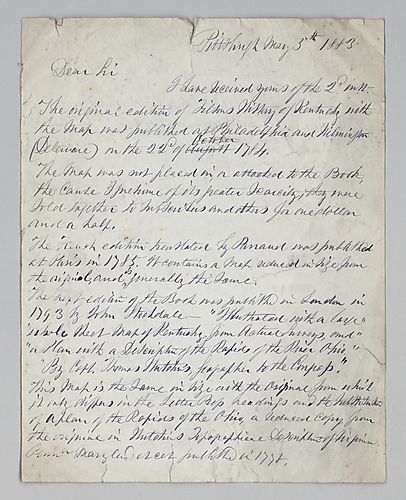 Pittsburgh May 5th 1883.
Dear Sir
I have received yours of the 2d inst.
The original edition of Filsons History of Kentucky with
the Map was published at Philadelphia and Wilmington
(Delaware) on the 22d of August October 1784.
The Map was not placed in or attached to the Book
the Cause I presume of its greater Scarcity, they were
sold together to Subscribers and others for one dollar
and a half.
The French edition translated by Parraud was published
at Paris in 1785. It contains a Map reduced in size from
the original, and generally the Same.
The next edition of the Book was published in London in
1793 by John Stockdale - "Illustrated with a large
whole sheet Map of Kentucky from Actual Surveys and"
"a Plan with a Description of the Rapids of the River Ohio"
"By Capt. Thomas Hutchins, Geographer to the Congress."
This Map is the Same in Size with the Original from which
it only differs in the Letter Press headings and the substitution
of a plan of the Rapids of the Ohio, a reduced Copy from
the original in Hutchins Topographical Description of Virginia
Penna Maryland &c &c published in 1778.